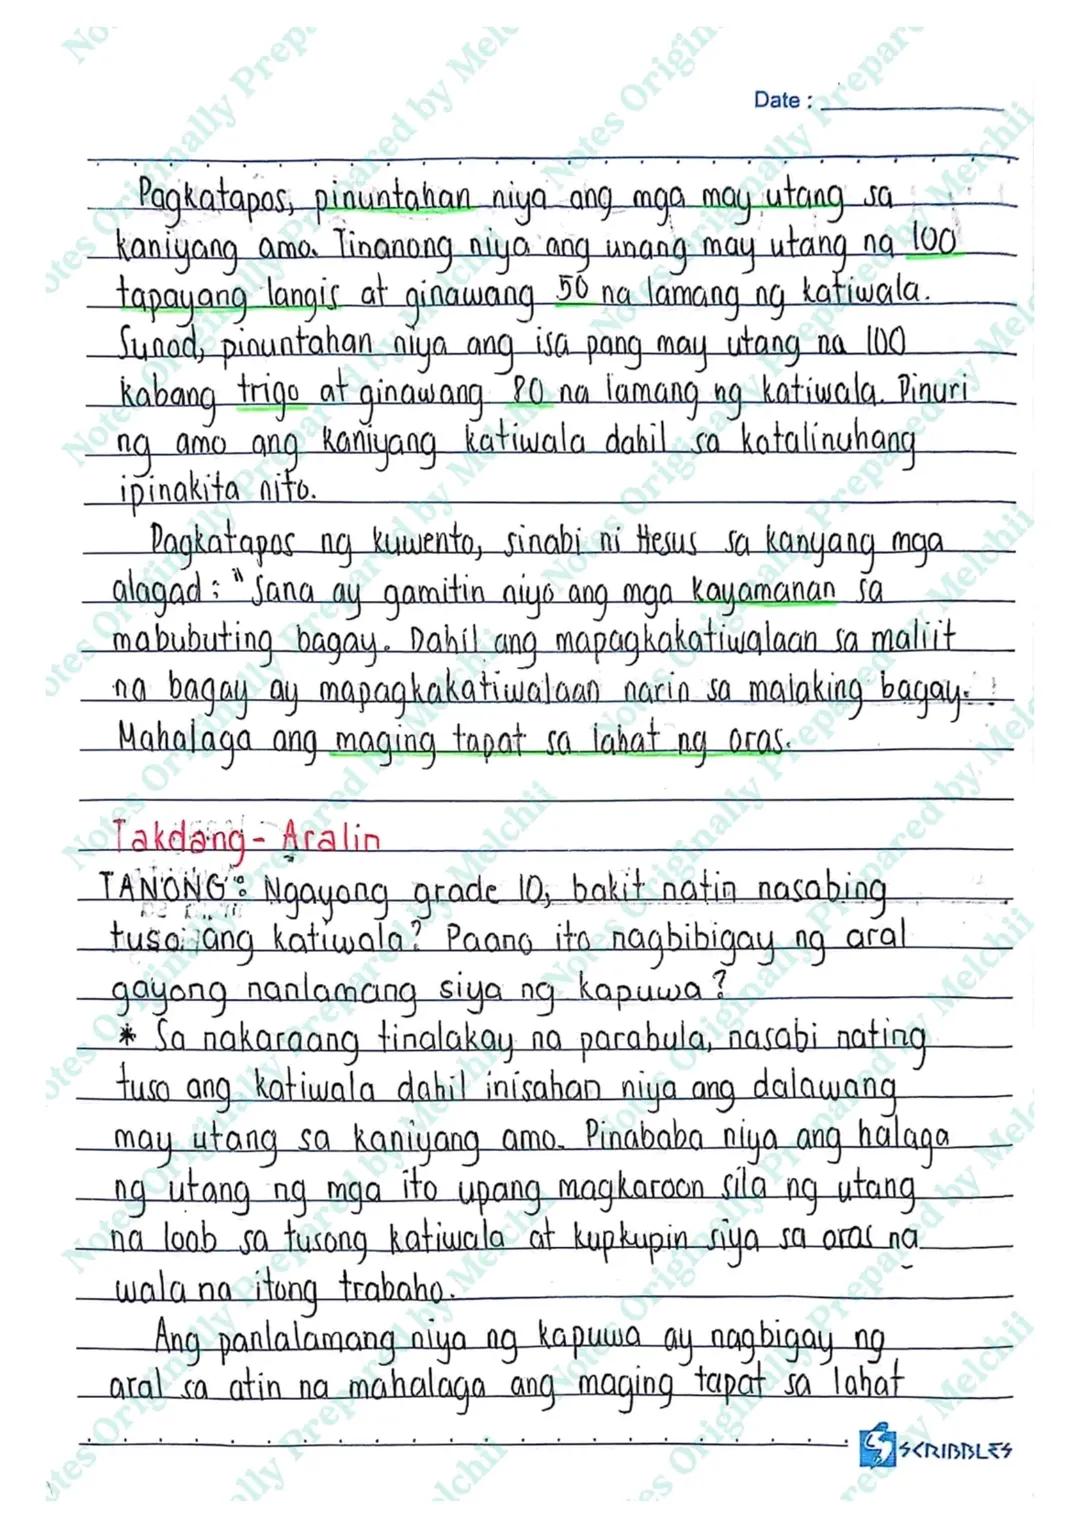 Date :
Pagkatapos, pinuntahan niya ang mga may utang sa
kaniyang amo. Tinanong niya ang unang may utang na 100
tapayang langis at ginawang 50 na lamang ng katiwala.
Sunod, pinuntahan niya ang isa pang may utang na 100
kabang trigo at ginawang 80 na lamang ng katiwala. Pinuri
ng amo ang kaniyang katiwala dahil sa katalinuhang
ipinakita nito.
Pagkatapos ng kuwento, sinabi ni Hesus sa kanyang mga
alagad : " Sana ay gamitin niyo ang mga kayamanan sa
mabubuting bagay. Dahil ang mapagkakatiwalaan sa maliit
na bagay ay mapagkakatiwalaan narin sa malaking bagay.
Mahalaga ang maging tapat sa lahat ng oras.
Takdang - Aralin
TANONG : Ngayong grade 10, bakit natin nasabing
tuso ang katiwala? Paano ito nagbibigay ng aral
gayong nanlamang siya ng kapuwa?
* Sa nakaraang tinalakay na parabula, nasabi nating
tuso ang katiwala dahil inisahan niya ang dalawang
may utang sa kaniyang amo. Pinababa niya ang halaga
ng utang ng mga ito upang magkaroon sila ng utang
na loob sa tusong katiwala at kupkupin siya sa oras na
wala na itong trabaho.
Ang panlalamang niya ng kapuwa ay nagbigay ng
aral sa atin na mahalaga ang maging tapat sa lahat
SCRIBBLES
Notes Originally Prepared by Melchii